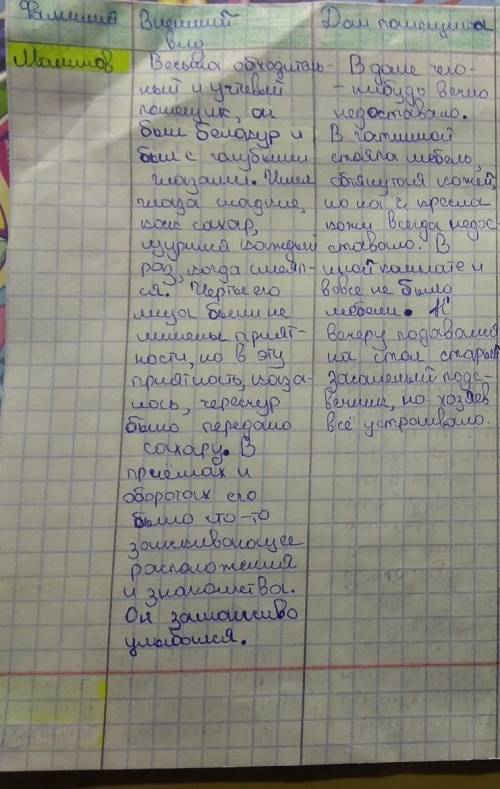 Фамилия
Внешний
вид
Дом помещика
Манилов
Весьма обходитель-
ный и учтевый
помещик, он
был белокур и
был с голубыми
глазами. Имел
глаза сладкие,
как сахар,
щурил каждый
раз, когда смеял-
ся. Черты его
лица были не
лишены прият-
ности, но в эту
приятность, каза-
лось, чересчур
было передано
сахару. В
приёмах и
оборотах его
было что-то
заискивающее
расположения
и знакомства.
Он заманчиво
улыбался.
В доме чего-
-нибудь вечно
недоставало.
В гостиной
стояла мебель,
обтянутая кожей,
но на 2 кресла
кожи всегда недос-
тавало. В
иной комнате и
вовсе не было
мебели. К
вечеру подавался
на стол старый
засаленый подс-
вечник, но хозяев
всё устраивало.